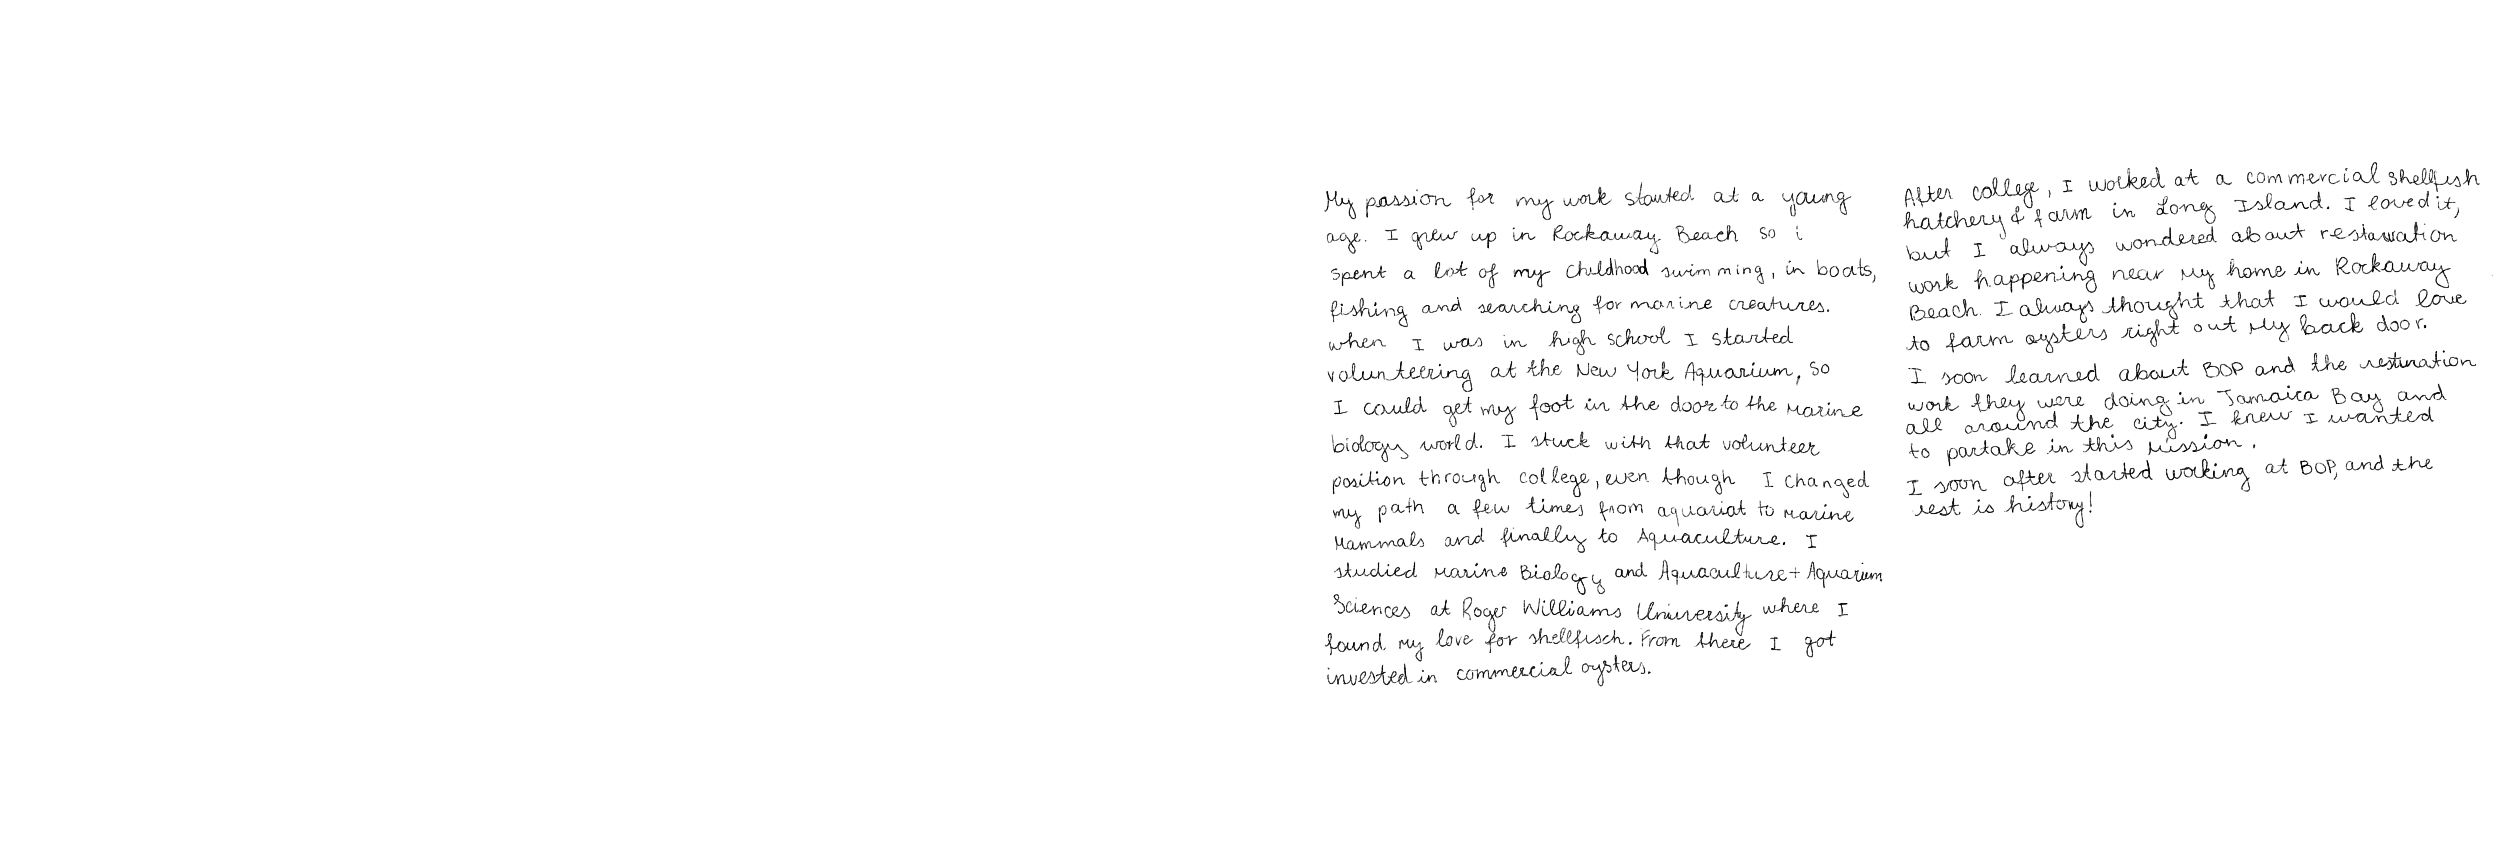 My passion for my work started at a young
age. I grew up in Rockaway Beach so i
spent a lot of my childhood swimming, in boats,
fishing and searching for marine creatures.
when I was in high school I started
volunteering at the New York Aquarium, so
I could get my foot in the door to the Marine
biology world. I stuck with that volunteer
position through college, even though I changed
my path a few times from aquariat to Marine
Mammals and finally to Aquaculture. I
studied Marine Biology and Aquaculture + Aquarium
Sciences at Roger Williams University where I
found my love for shellfisch. From there I got
invested in commercial oysters.
After college, I worked at a commercial shellfish
hatchery & farm in Long Island. I loved it,
but I always wondered about restauration
work happening near My home in Rockaway
Beach. I always thought that I would love
to farm oysters right out My back door.
I soon learned about BOP and the restination
work they were doing in Jamaica Bay and
all around the city. I knew I wanted
to partake in this Mission.
I soon after started working at BOP, and the
rest is history!